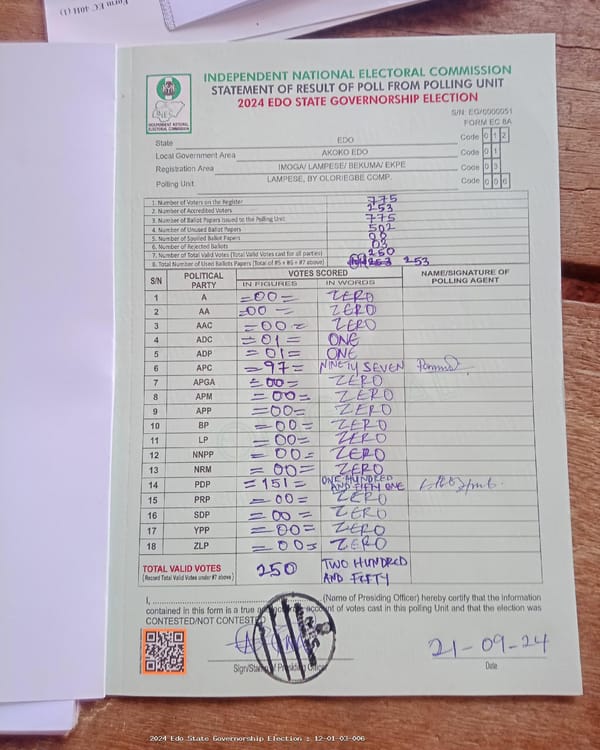 Form EC 40H (1)
INDEPENDENT NATIONAL ELECTORAL COMMISSION
STATEMENT OF RESULT OF POLL FROM POLLING UNIT
2024 EDO STATE GOVERNORSHIP ELECTION
INEC
INDEPENDENT NATIONAL ELECTORAL COMMISSION
S/N: EG/0000051
FORM EC 8A
State EDO Code 0 1 2
Local Government Area AKOKO EDO Code 0 1
Registration Area IMOGA/ LAMPESE/ BEKUMA/ EKPE Code 0 3
Polling Unit LAMPESE, BY OLORIEGBE COMP. Code 0 0 6
1. Number of Voters on the Register 775
2. Number of Accredited Voters 253
3. Number of Ballot Papers Issued to the Polling Unit 775
4. Number of Unused Ballot Papers 502
5. Number of Spoiled Ballot Papers 00
6. Number of Rejected Ballots 03
7. Number of Total Valid Votes (Total Valid Votes cast for all parties) 250
8. Total Number of Used Ballots Papers (Total of #5 + #6 + #7 above) 253 253
S/N POLITICAL PARTY VOTES SCORED NAME/SIGNATURE OF POLLING AGENT
IN FIGURES IN WORDS
1 A =00= ZERO
2 AA =00= ZERO
3 AAC =00= ZERO
4 ADC =01= ONE
5 ADP =01= ONE
6 APC =97= NINETY SEVEN
7 APGA =00= ZERO
8 APM =00= ZERO
9 APP =00= ZERO
10 BP =00= ZERO
11 LP =00= ZERO
12 NNPP =00= ZERO
13 NRM =00= ZERO
14 PDP =151= ONE HUNDRED AND FIFTY ONE
15 PRP =00= ZERO
16 SDP =00= ZERO
17 YPP =00= ZERO
18 ZLP =00= ZERO
TOTAL VALID VOTES 250 TWO HUNDRED AND FIFTY
(Record Total Valid Votes under #7 above)
I, (Name of Presiding Officer) hereby certify that the information
contained in this form is a true account of votes cast in this polling Unit and that the election was
CONTESTED/NOT CONTESTED
21-09-24
Sign/Stamp of Presiding Officer Date
2024 Edo State Governorship Election : 12-01-03-006